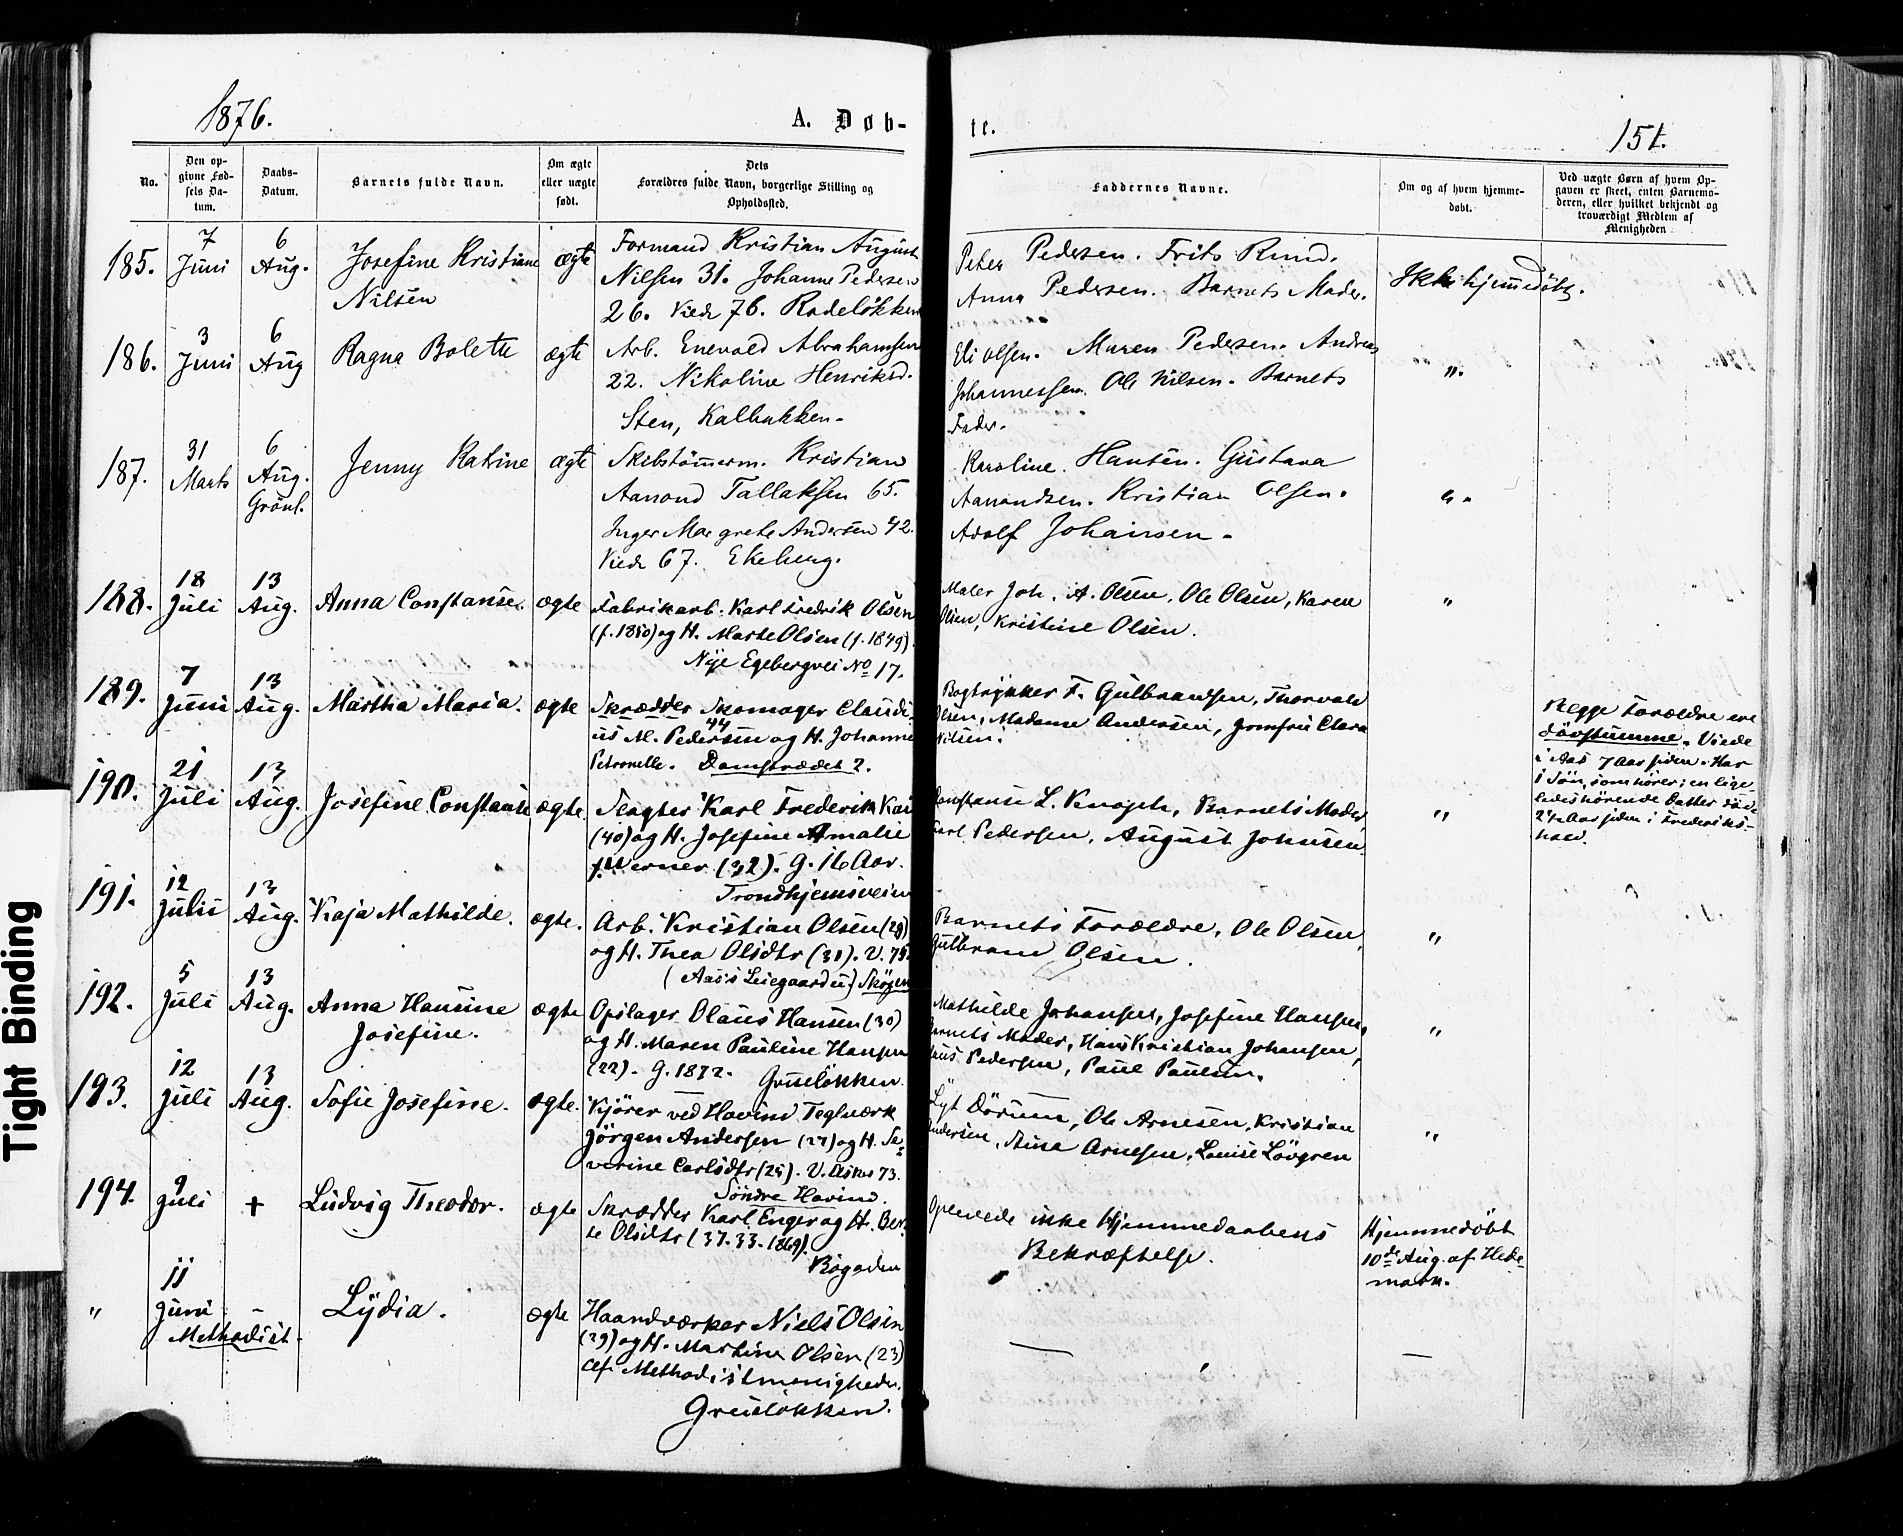 1876.
A. Døb-
te.
151.
No.
Den op-
givne Fød-
sels Da-
tum.
Daabs-
Datum.
Barnets fulde Navn.
Om ægte
eller uægte
født.
Dets
Forældres fulde Navn, borgerlige Stilling og
Opholdssted.
Faddernes Navne.
Om og af hvem hjemme-
døbt.
Ved uægte Børn af hvem Op-
gaven er skeet, enten Barnemo-
deren, eller hvilket bekjendt og
troværdigt Medlem af
Menigheden
185.
7
Juni
6
Aug.
Josefine Kristiane
Nilsen
ægte
Formand Kristian August
Nilsen 31. Johanne Pedersen
26. Viede 76. Rodeløkken
Peter Pedersen. Frits Rund.
Anna Pedersen. Barnets Moder.
Ikke hjemmedöbt.
186.
3
Juni
6
Aug
Ragna Bolette
ægte
Arb. Enevold Abrahamsen
22. Nikoline Henriksd.
Sten, Kalbakken.
Eli Olsen. Maren Pedersen. Andreas
Johannessen. Ole Nilsen. Barnets
Fader.
".
187.
31
Marts
6
Aug.
Grönl.
Jenny Katrine
ægte
Skibstömerm. Kristian
Aanond Tallaksen 65.
Inger Margrete Andersen 42.
Viede 67. Ekeberg.
Karoline Hansen. Gustava
Aanondsen. Kristian Olsen.
Adolf Johansen.
".
188.
18
Juli
13
Aug.
Anna Constanse.
ægte
Fabrikarb. Karl Fredrik Olsen
(f. 1850) og H. Marte Olsen (f. 1849)
Nye Egebergvei No 17.
Maler Joh. A. Olsen, Ole Olsen, Karen
Olsen, Kristine Olsen.
"
189.
7
Juni
13
Aug.
Martha Maria.
ægte
Skrædder Skomager Claudi-
us M. Pedersen 44 og H. Johanne
Petronelle. Damstrædet 2.
Bogtrykker F. Gulbrandsen, Thorvald
Olsen, Madame Andersen, Jomfru Clara
Nilsen.
Begge Forældre ere
døvstumme. Viede
i Aas 7 Aar siden. Har
1 Søn, som hører; en lige-
ledes hørende Datter døde
2½ Aar siden i Frederiks-
hald.
190.
21
Juli
13
Aug.
Josefine Constanse
ægte
Slagter Karl Frederik
(40) og H. Josefine Amalie
f. Werner (32). G. 16 Aar.
Trondhjemsveien
Constanse L. Knoph, Barnets Moder
Karl Pedersen, August Johnsen.
"
191.
12
Juli
13
Aug.
Kaja Mathilde.
ægte.
Arb. Kristian Olsen (29)
og H. Thea Olsdtr (31). V. 75.
(Aas's Leiegaard) Skøyen
Barnets Forældre, Ole Olsen,
Gulbrand Olsen.
"
192.
5
Juli
13
Aug.
Anna Hansine
Josefine.
ægte
Opslager Olaus Hansen (30)
og H. Maren Pauline Hansen
(22). G. 1872. Grüneløkken.
Mathilde Johansen, Josefine Hansen,
Barnets Moder, Hans Kristian Johansen,
Pedersen, Paul Paulsen.
"
193.
12
Juli
13
Aug.
Sofie Josefine.
ægte.
Kjörer ved Hovind Teglværk
Jörgen Andersen (27) og H. Se-
verine Carlsdtr (25). V. Asker 73.
Söndre Hovind.
Dörum, Ole Arnesen, Kristian
Andersen, Stina Arnesen, Louise Lövgren
"
194.
9
Juli
+
Ludvig Theodor.
ægte
Skrædder Karl Enger og H. Ber-
te Olsdtr (37. 33. 1869).
Bögaden
Oplevede ikke Hjemmedaabens
Bekræftelse.
Hjemmedöbt
10de Aug. af Hede-
mark.
"
11
Juni
-
Methodist.
Lydia.
ægte
Haandværker Niels Olsen
(29) og H. Martine Olsen (23)
af Methodistmenigheden.
Grüneløkken.
—
—
Tight Binding